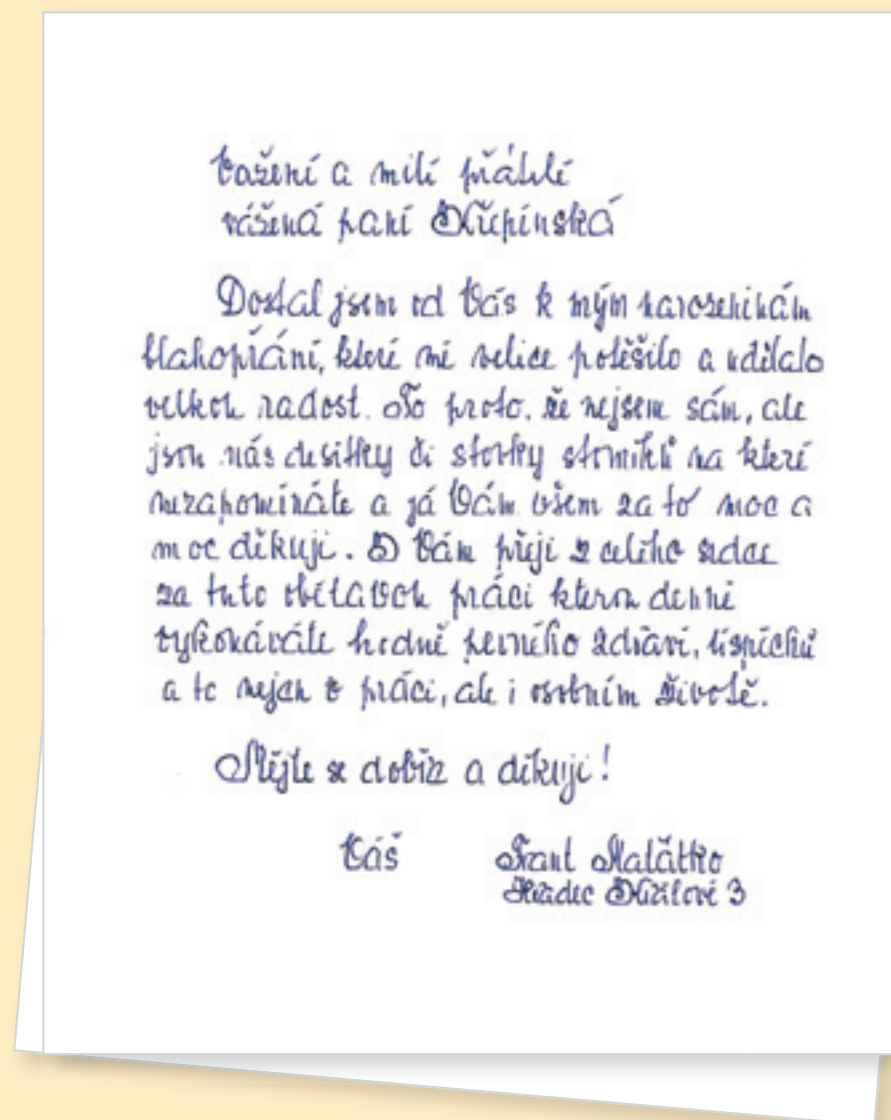 Vážení a milí přátelé
vážená paní Křepinská
Dostal jsem od Vás k mým narozeninám
blahopřání, které mě velice potěšilo a udělalo
velkou radost. To proto, že nejsem sám, ale
jsou nás desítky či stovky stomiků na které
nezapomínáte a já Vám všem za to moc a
moc děkuji. A Vám přeji z celého srdce
za tuto obětavou práci kterou denně
vykonáváte hodně pevného zdraví, úspěchů
a to nejen v práci, ale i osobním životě.
Mějte se dobře a děkuji!
Váš
Frant
Hradec Králové 3